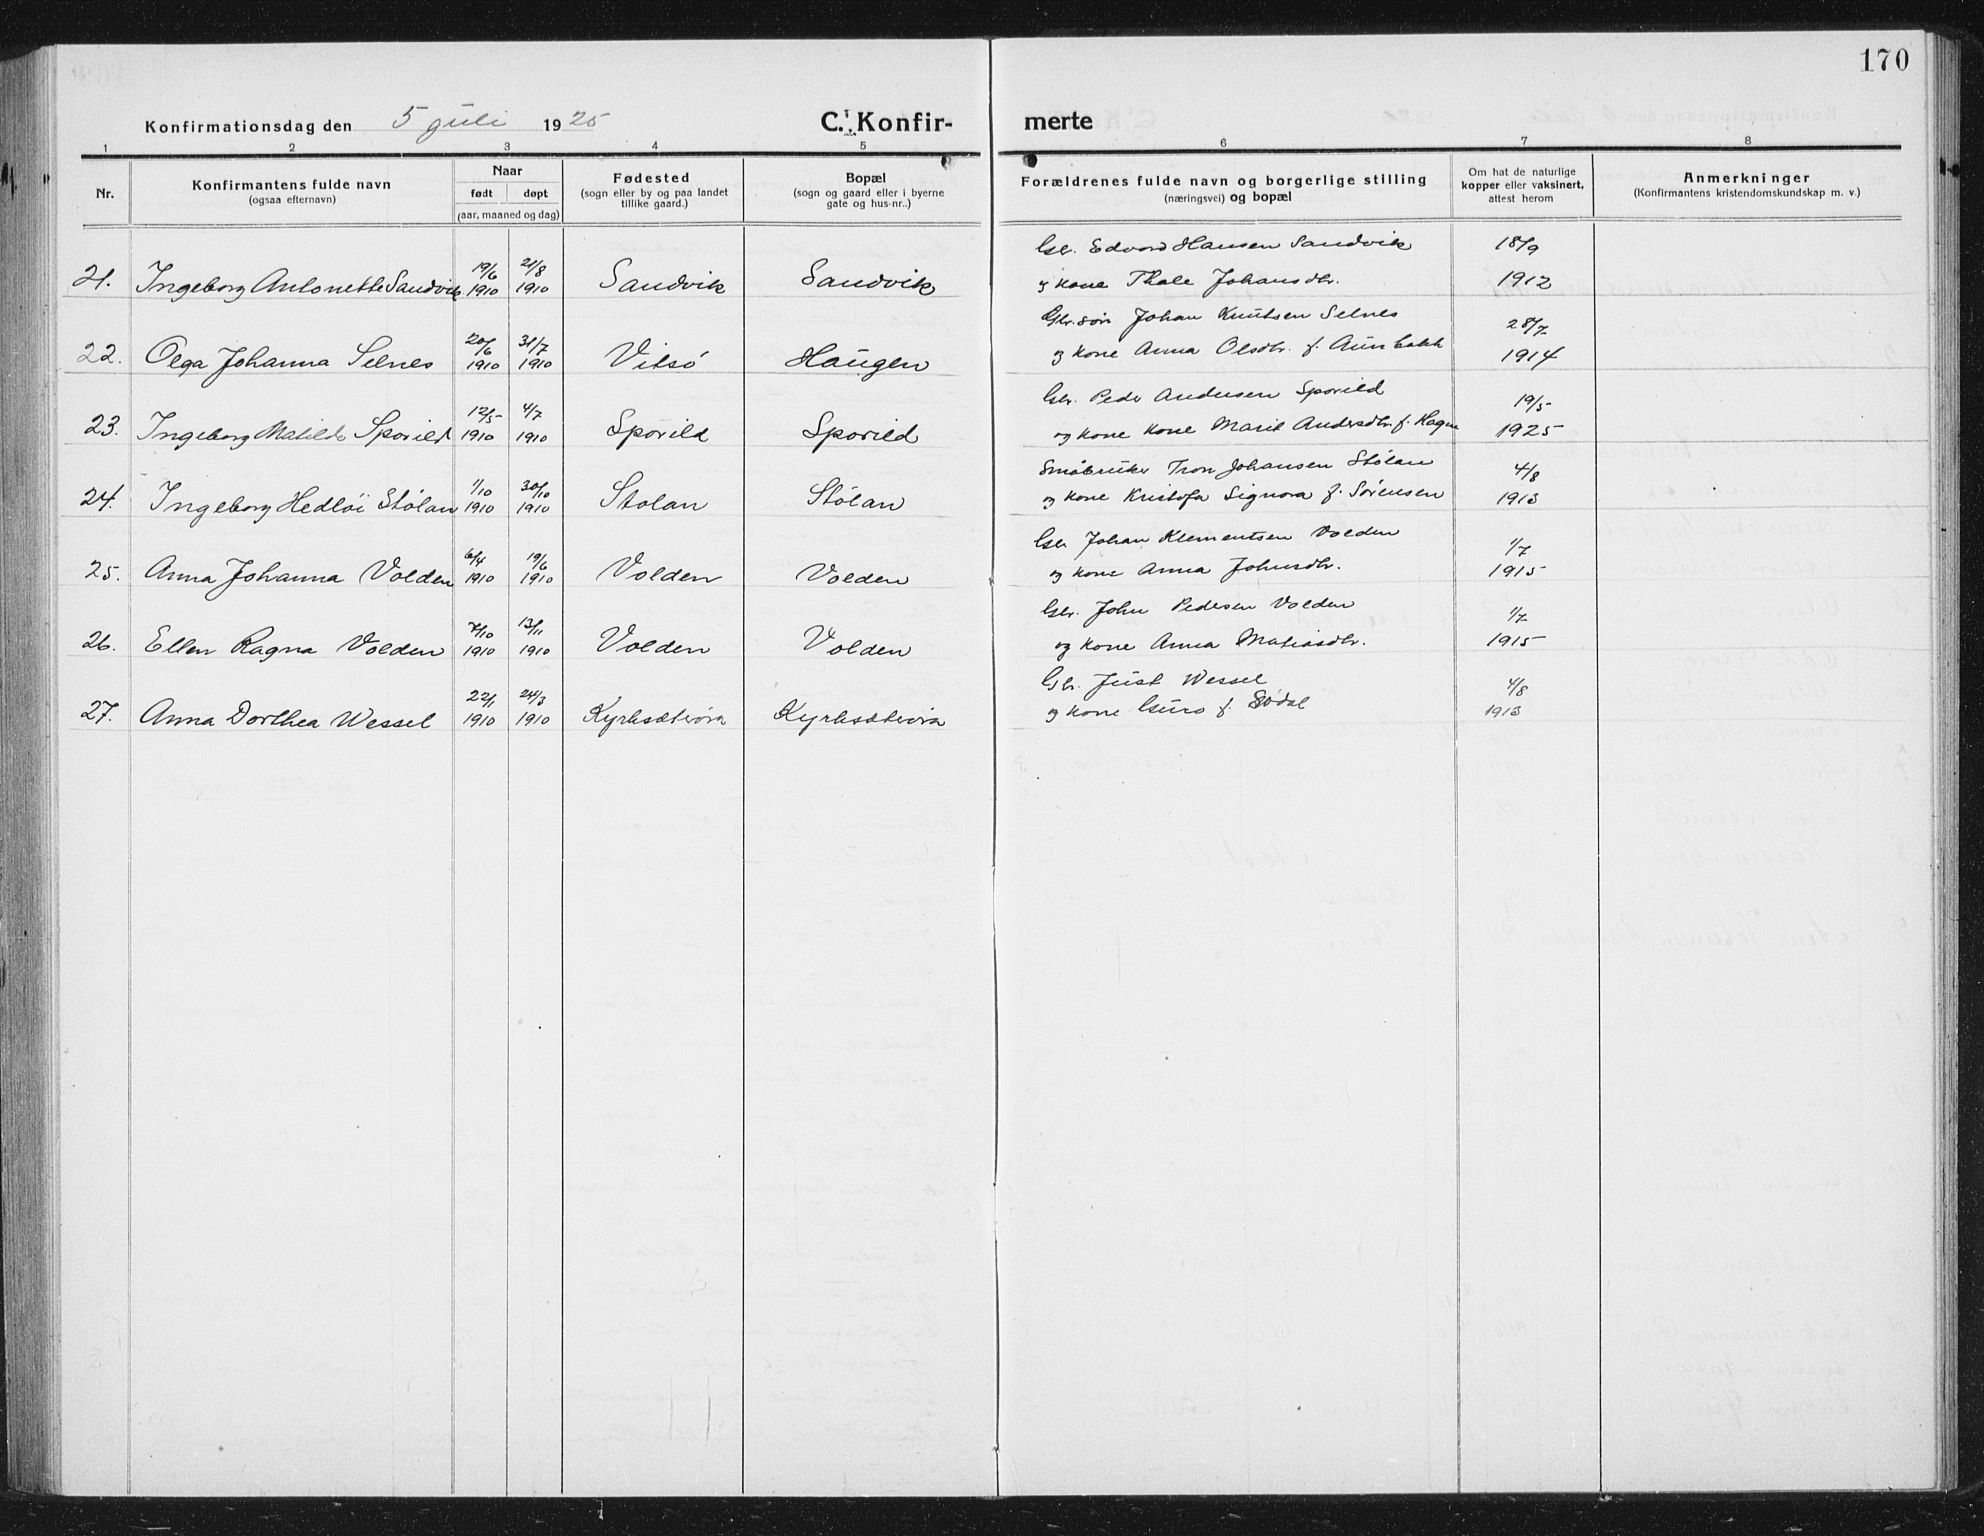 170
Konfirmationsdag den 5 juli 1925 C. Konfir- merte
1 2 3 4 5 6 7 8
Nr. Konfirmantens fulde navn (ogsaa efternavn) Naar født døpt (aar, maaned og dag) Fødested (sogn eller by og paa landet tillike gaard.) Bopæl (sogn og gaard eller i byerne gate og hus-nr..) Forældrenes fulde navn og borgerlige stilling (næringsvei) og bopæl Om hat de naturlige kopper eller vaksinert, attest herom Anmerkninger (Konfirmantens kristendomskundskap m. v.)
Gbr. Edvard Hansen Sandvik 18/9
21. Ingeborg Antonette Sandvik 19/6 1910 21/8 1910 Sandvik Sandvik og kone Thale Johansdtr. 1912
Gbr. søn Johan Knutsen Selnes 28/7
22. Olga Johanna Selnes 20/6 1910 31/7 1910 Vitsø Haugen og kone Anna Olsdtr. f. Aunbakk 1914
Gbr. Peder Andersen Sporild 19/5
23. Ingeborg Matilde Sporild 12/5 1910 4/7 1910 Sporild Sporild og kone kone Marit Andersdtr. f. Hagen 1925
Småbruker Tron Johansen Stølan 4/8
24. Ingeborg Hedløi Stølan 1/10 1910 30/10 1910 Stolan Stølan og kone Kristofa Signora f. Sørensen 1913
Gbr Johan Klementsen Volden 1/7
25. Anna Johanna Volden 6/4 1910 19/6 1910 Volden Volden og kone Anna Johnsdtr. 1915
Gbr. John Pedersen Volden 1/7
26. Ellen Ragna Volden 7/10 1910 13/11 1910 Volden Volden og kone Anna Matiasdtr. 1915
Gbr. Just Wessel 4/8
27. Anna Dorthea Wessel 22/1 1910 24/3 1910 Kyrksæterøra Kyrksæterøra og kone Guro f. Sødal 1913